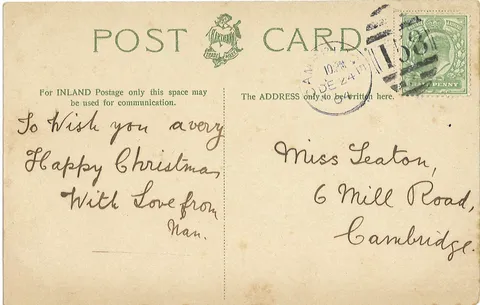 POST CARD
For INLAND Postage only this space may
be used for communication.
The ADDRESS only to be written here.
To Wish you a very
Happy Christmas
With Love from
Nan.
Miss Leaton,
6 Mill Road,
Cambridge.
158
DE 24